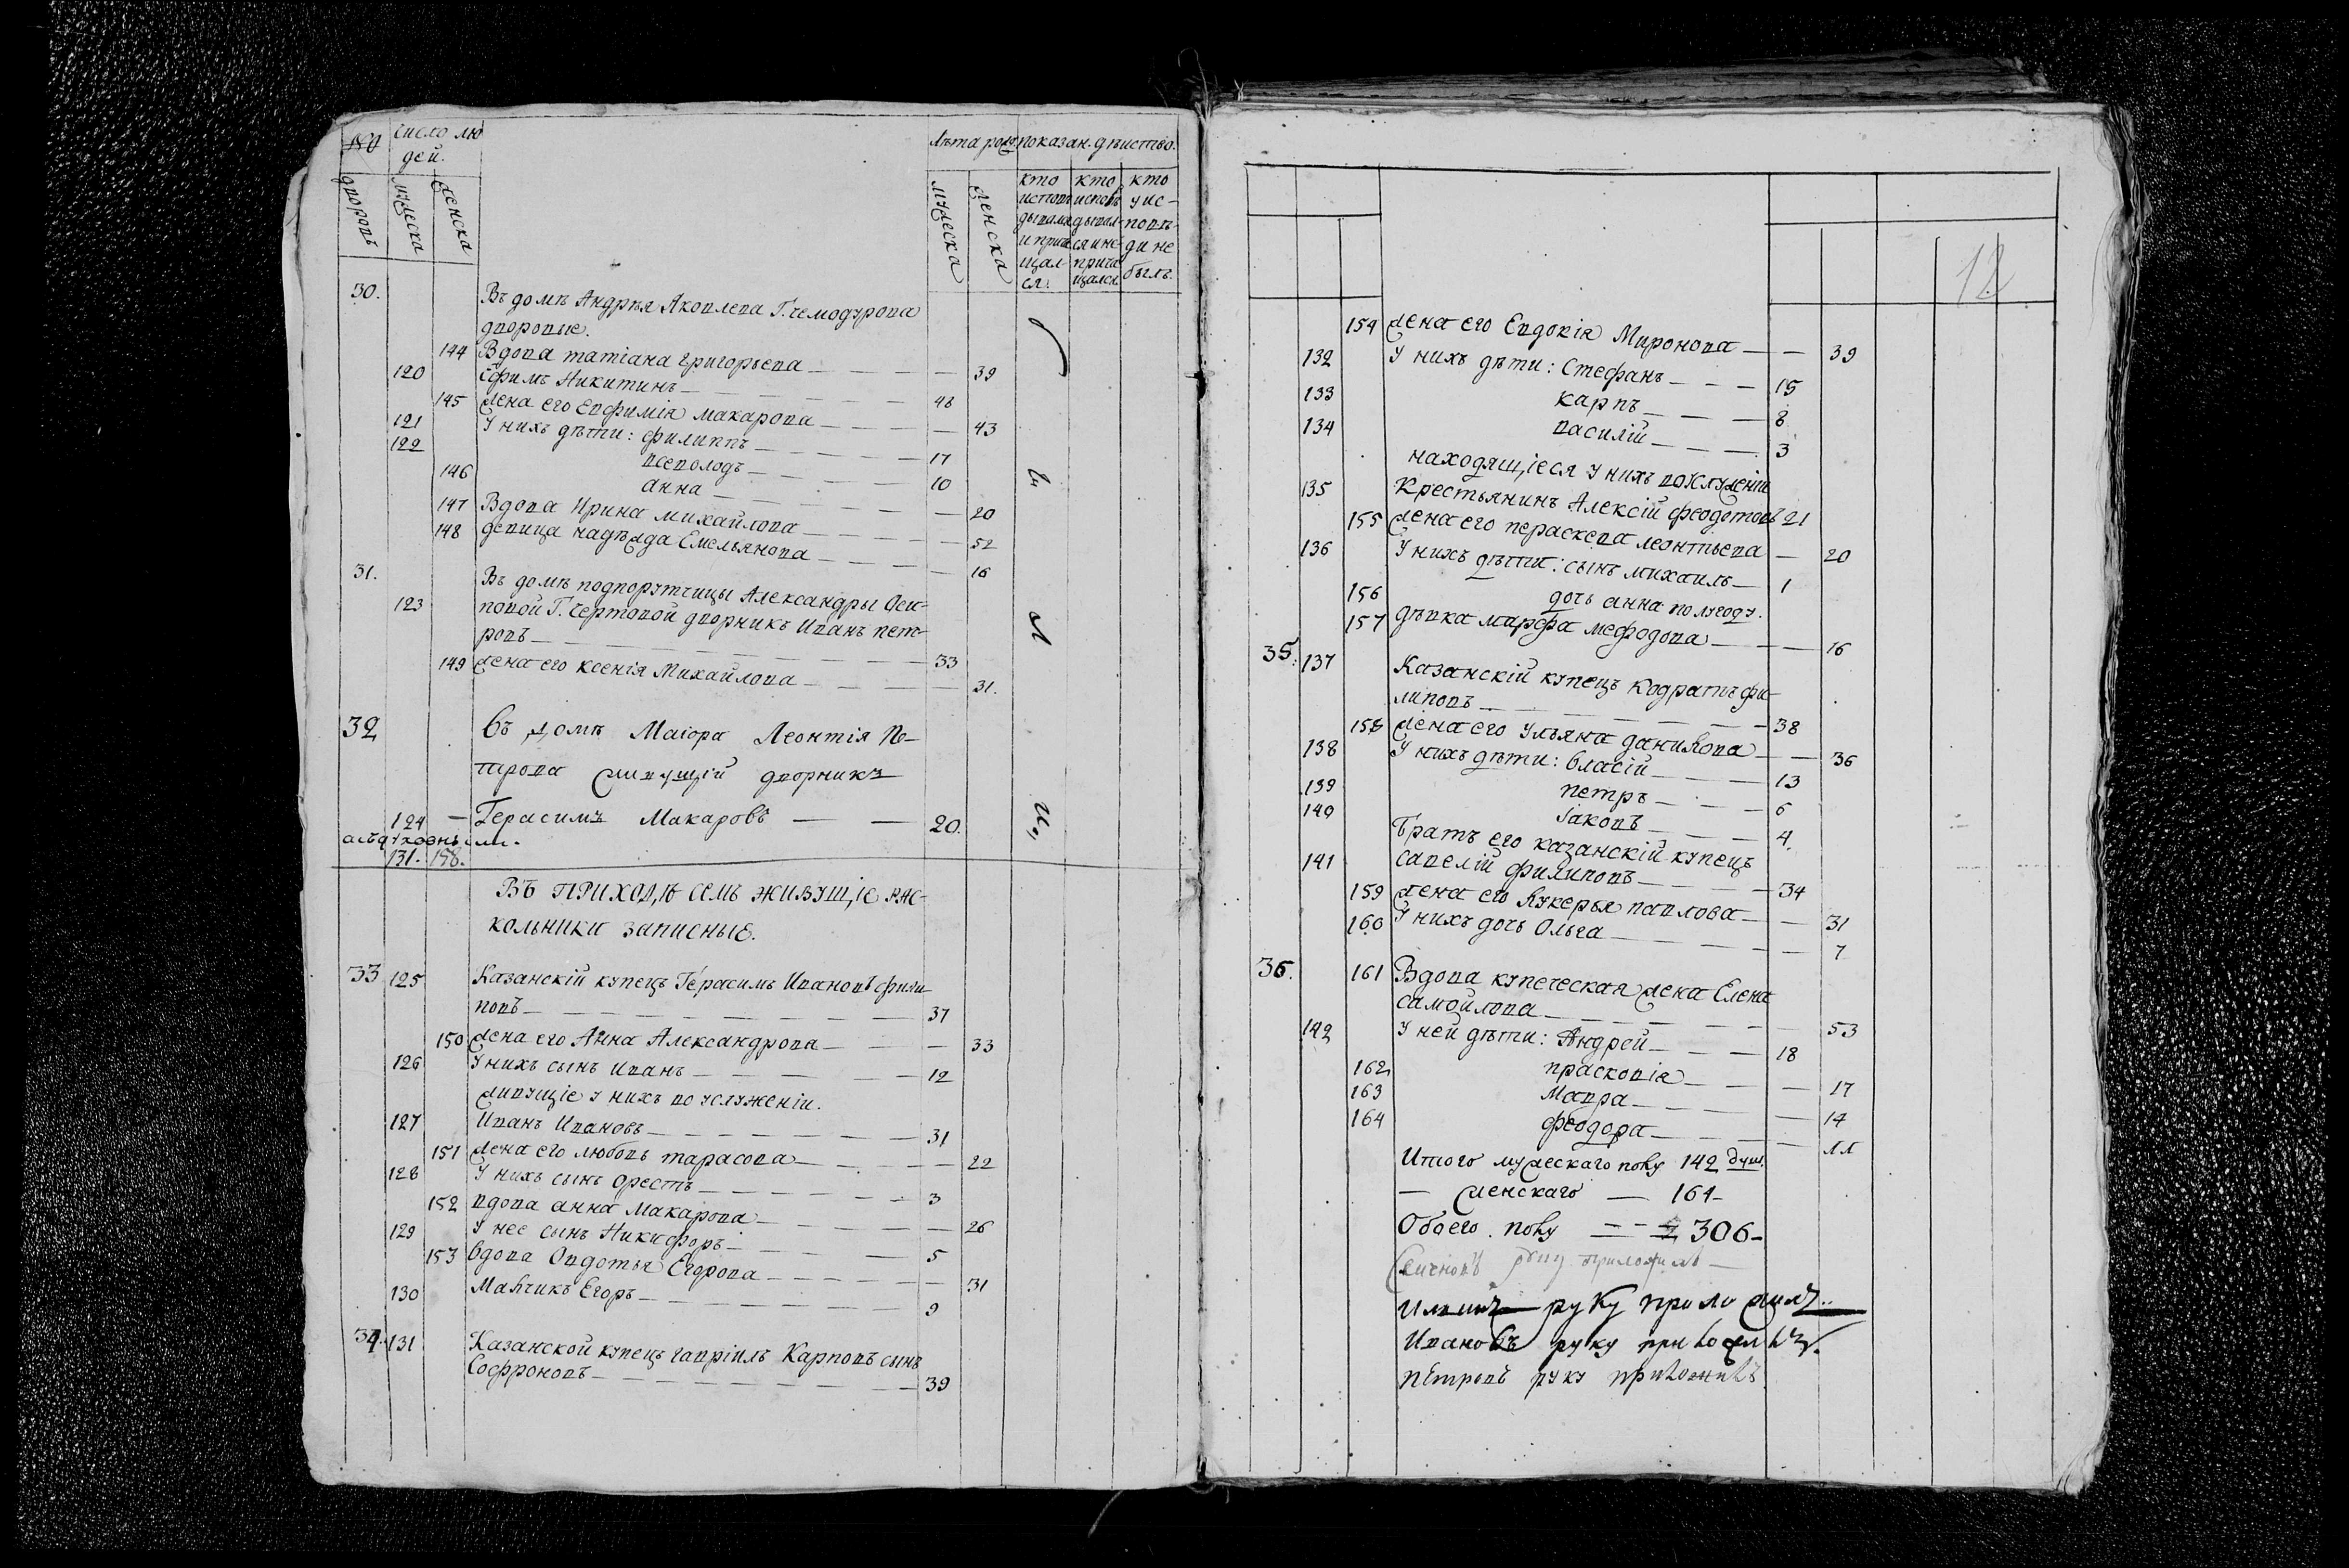 число лю
дей.
лѣта рож. показан. дѣиство.
дворовъ
мужеска
женска
мужеска
женска
кто исповѣдывался и прича щал ся.
кто исповѣдывал ся и не прича щался
кто у ис повѣ ди не былъ.
30. Въ домѣ Андрѣя Яковлева Г. чемодурова
дворовые.
144 Вдова татіана григорьева — 39
120 Ефимъ Никитинъ — 48
145 жена его Евфимія макарова — 43
121 У нихъ дѣти: филиппъ — 17
122 всеволодъ — 10
146 анна — 20
147 Вдова Ирина михайлова — 52
148 девица надѣжда Емельянова — 16
31. Въ домѣ подпорутчицы Александры Оси-
123 повой Г. чертовой дворникъ Иванъ пет-
ровъ — 33
149 жена его ксенія Михайлова — 31.
32 Въ домѣ Маіора Леонтія Пе-
трова живущій дворникъ
124 — Герасимъ Макаровъ — 20.
131. 158.
Въ приходѣ семъ живущіе рас-
кольники записные.
33 125 Казанскій купецъ Герасимъ Ивановъ фили-
повъ — 37
150 жена его Анна Александрова — 33
126 У нихъ сынъ Иванъ — 12
живущіе у нихъ во услуженіи.
127 Иванъ Ивановъ — 31
151 жена его любовь тарасова — 22
128 У нихъ сынъ орестъ — 3
152 вдова анна Макарова — 26
129 У нее сынъ Никифоръ — 5
153 вдова Овдотья Егорова — 31
130 Мальчикъ Егоръ — 9
34. 131 Казанской купецъ гавріилъ Карповъ сынъ
Софроновъ — 39
12
154 жена его Евдокія Миронова — 39
132 У нихъ дѣти: Стефанъ — 15
133 карпъ — 8
134 василій — 3
находящіеся у нихъ во служеніи
135 Крестьянинъ Алексій феодотовъ 21
155 жена его пераскева леонтьева — 20
136 У нихъ дѣти: сынъ михаилъ — 1
156 дочь анна полугоду.
157 дѣвка марфа мефодова — 16
35. 137 Казанскій купецъ Кодратъ фи-
липовъ — 38
158 жена его Ульяна данилова — 36
138 У нихъ дѣти: власій — 13
139 петръ — 6
140 Іаковъ — 4.
Братъ его казанскій купецъ
141 савелій филиповъ — 34
159 жена его Лукерья павлова — 31
160 У нихъ дочь Ольга — 7
36. 161 Вдова купеческая жена Елена
самойлова — 53
142 У ней дѣти: Андрей — 18
162 прасковія — 17
163 Мавра — 14
164 феодора — 11
Итого мужескаго полу 142 душ.
— женскаго — 164 —
Обоего полу — 306 —
руку приложилъ —
руку приложилъ
Ивановъ руку приложилъ.
Петровъ руку приложилъ